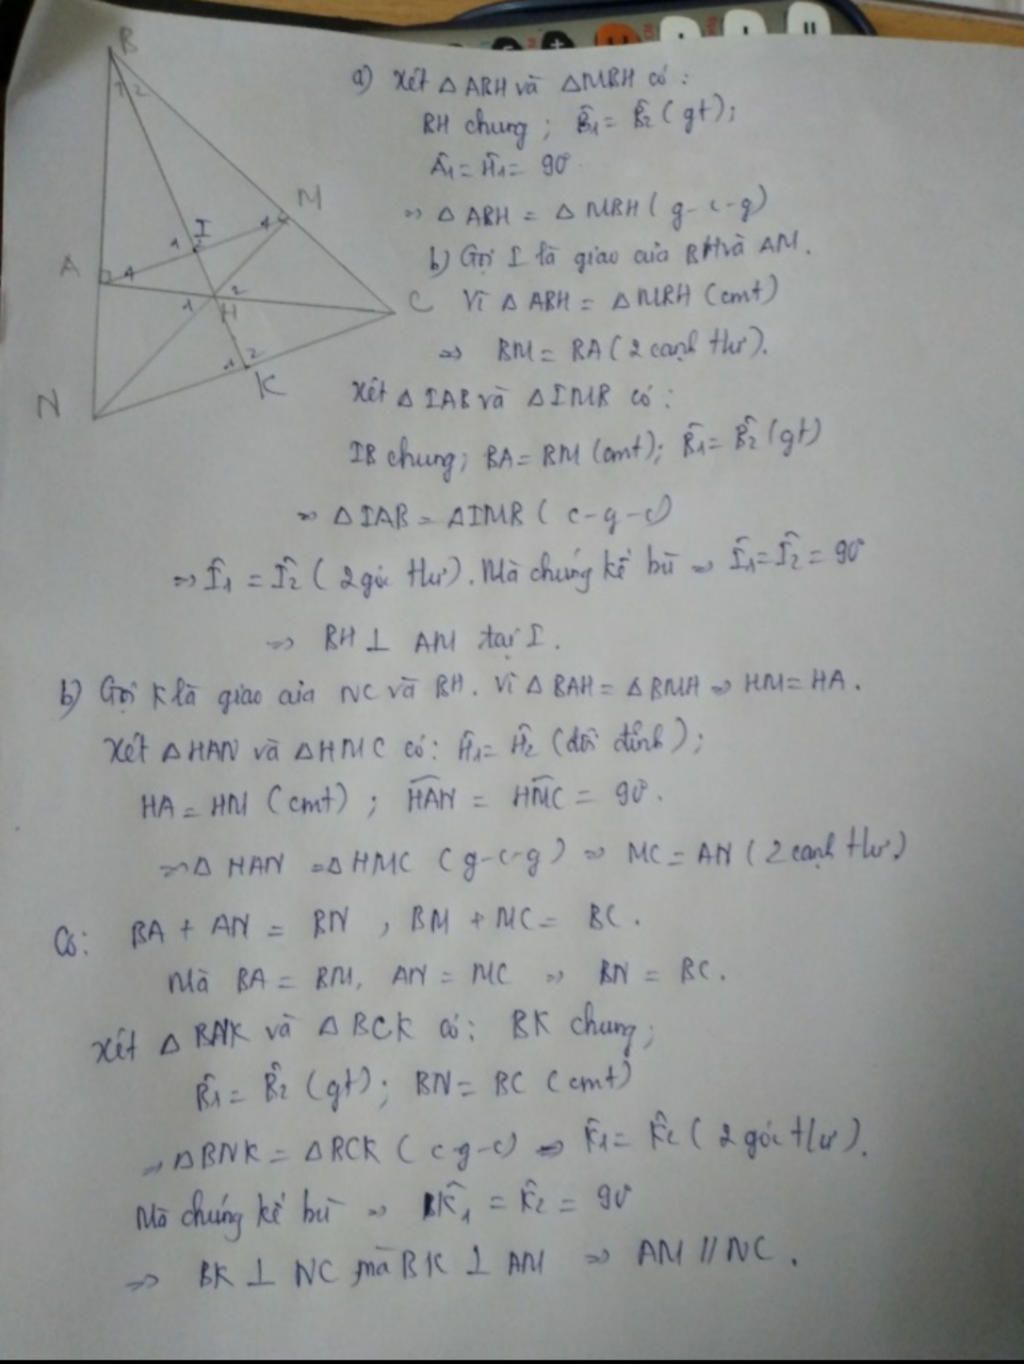 B
1 2
M
I
1 2
1
A
1
C
1 2
H
1 2
N
K
a) Xét △ ABH và △MBH có :
BH chung ; B̂1 = B̂2 ( gt) ;
Â1 = M̂1 = 90°
⇒ △ ABH = △ MBH ( g - c - g)
b) Gọi I là giao của BH và AM .
Vì △ ABH = △ MBH (cmt)
⇒ BM = BA ( 2 cạnh t/ư ).
Xét △ IAB và △ IMB có :
IB chung; BA = BM (cmt); B̂1 = B̂2 (gt)
⇒ △IAB = △IMB ( c - g - c)
⇒ Î1 = Î2 ( 2 góc t/ư ) . Mà chúng kề bù ⇒ Î1 = Î2 = 90°
⇒ BH ⊥ AM tại I .
b) Gọi K là giao của NC và BH . Vì △ BAH = △ BMH ⇒ HM = HA .
Xét △HAN và △HMC có : Ĥ1 = Ĥ2 (đối đỉnh ) ;
HA = HM ( cmt) ; HAN = HMC = 90° .
⇒ △ HAN = △ HMC ( g - c - g ) ⇒ MC = AN ( 2 cạnh t/ư )
Có : BA + AN = BN , BM + MC = BC .
Mà BA = BM, AN = MC ⇒ BN = BC .
Xét △ BNK và △ BCK có : BK chung ;
B̂1 = B̂2 (gt) ; BN = BC ( cmt)
⇒ △BNK = △BCK ( c - g - c) ⇒ K̂1 = K̂2 ( 2 góc t/ư ) .
Mà chúng kề bù ⇒ K̂1 = K̂2 = 90°
⇒ BK ⊥ NC mà BK ⊥ AM ⇒ AM // NC .